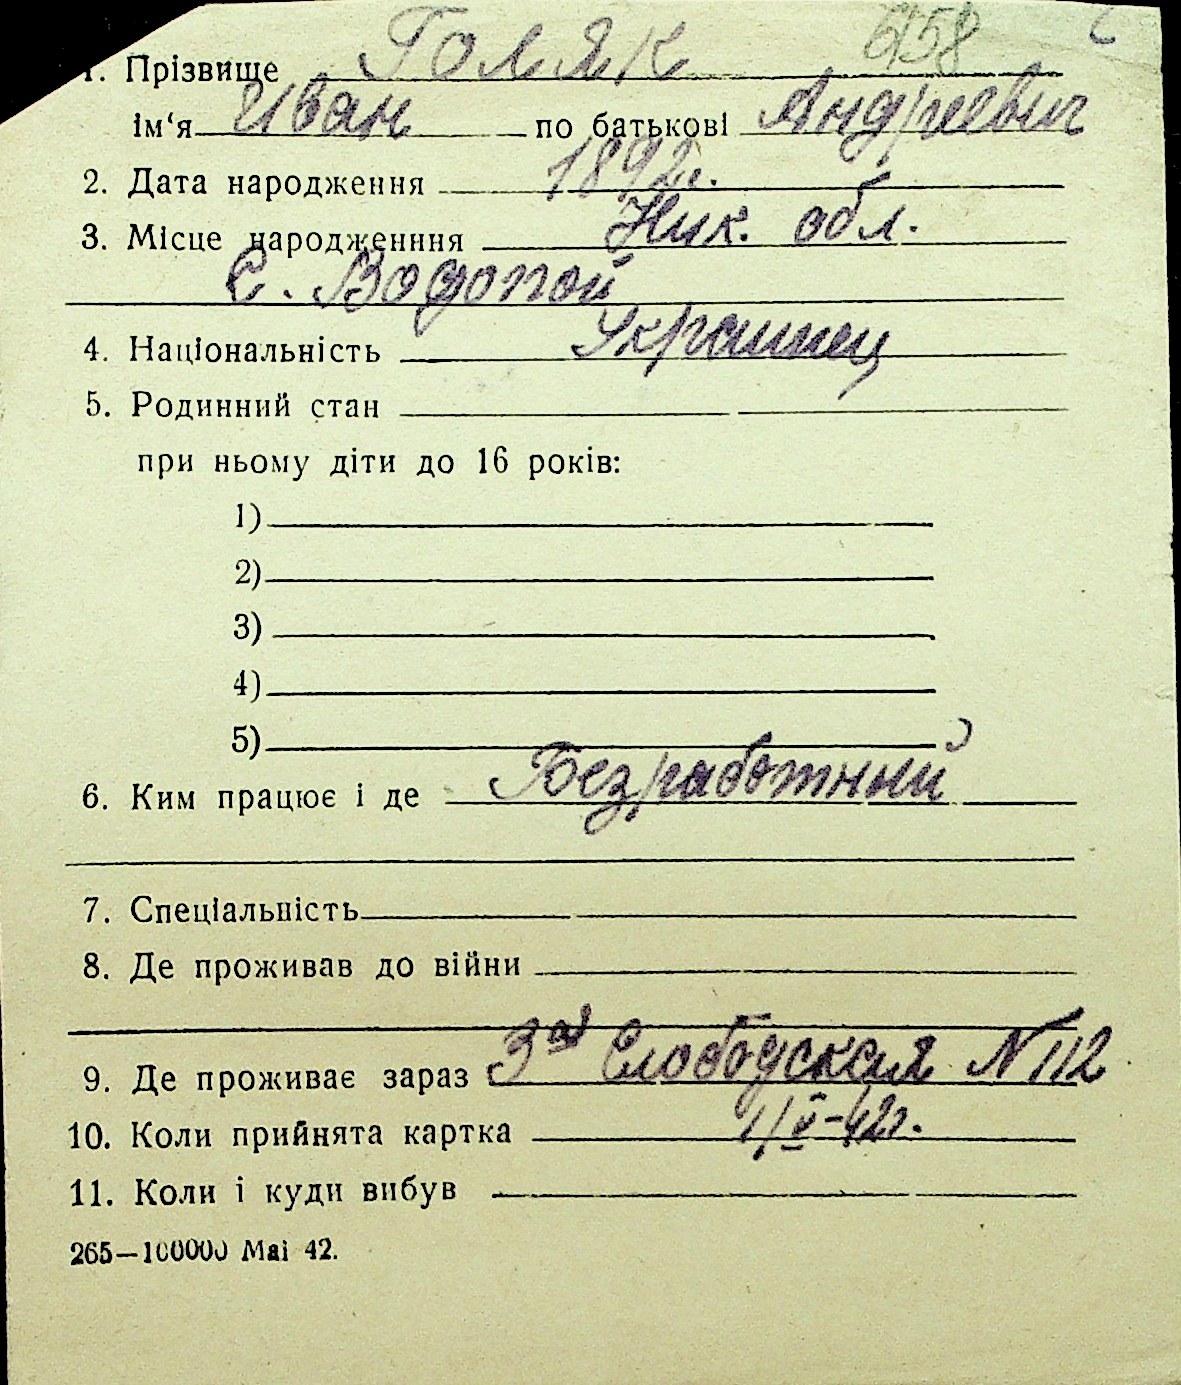 6158
1. Прізвище Голяк
ім‘я Иван по батькові Андреевич
2. Дата народження 1892г.
3. Місце народженння Ник. обл.
с. Водопой
4. Національність Украинец
5. Родинний стан
при ньому діти до 16 років:
1)
2)
3)
4)
5)
6. Ким працює і де Безработный
7. Спеціальність
8. Де проживав до війни
9. Де проживає зараз 3ая Слободская № 112
10. Коли прийнята картка 1/V-42г.
11. Коли і куди вибув
265—100000 Mai 42.